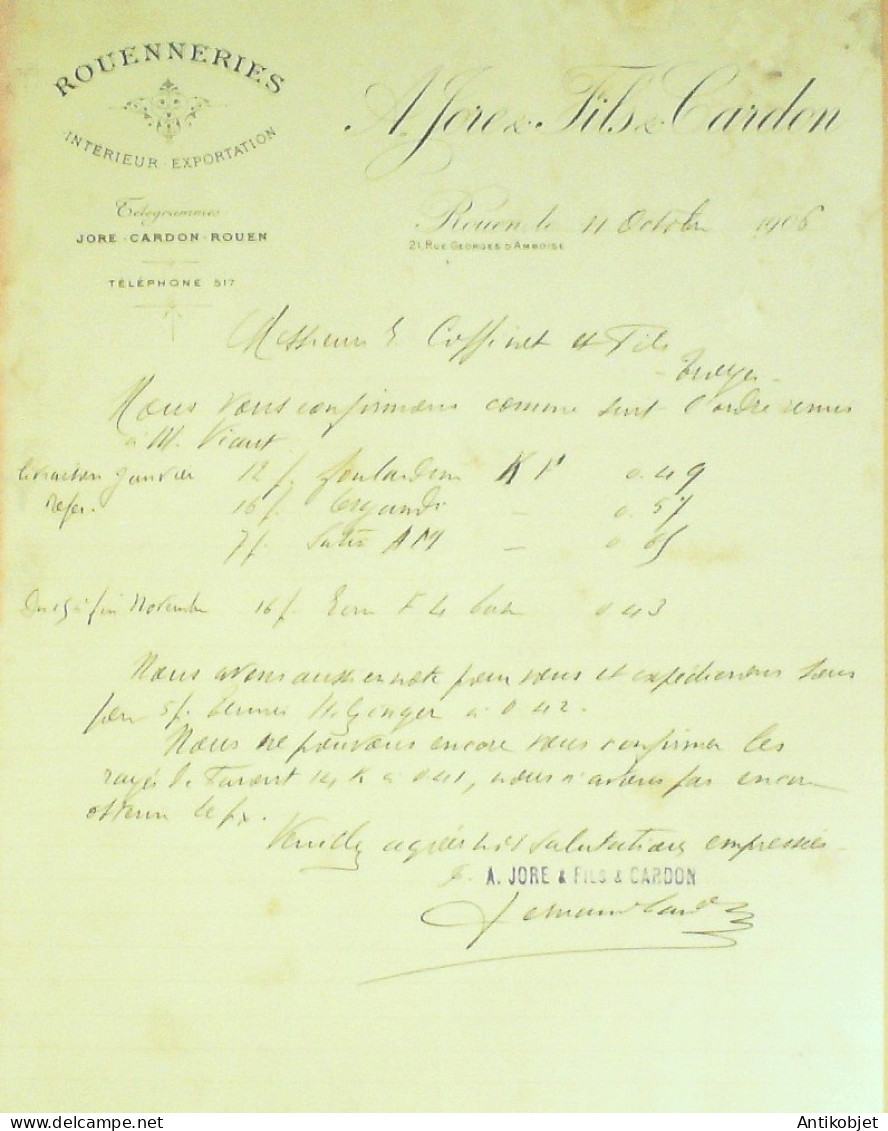 ROUENNERIES
INTÉRIEUR - EXPORTATION
A. Jore & Fils & Cardon
Télégrammes
JORE - CARDON - ROUEN
TÉLÉPHONE 517
Rouen, le 11 Octobre 1906
21, RUE GEORGES D'AMBOISE
Messieurs E. Coffinet et Fils
Troyes
Nous vous confirmons comme suit l'ordre remis
à M. Viart
livraison Janvier 12 f. foulardine K F 0.49
16 f. Organdi — 0.57
7 f. Satin AM — 0.65
Du 15 à fin Novembre 16 f. F 4 0 43
Nous avons aussi en note pour vous et expédierons sous
peu 5 f. à 0 42.
Nous ne pouvons encore vous confirmer les
rayés 14 K à 0 41, nous n'avons pas encore
obtenu le px.
Veuillez agréer nos salutations empressées
A. JORE & FILS & CARDON
Antikobjet